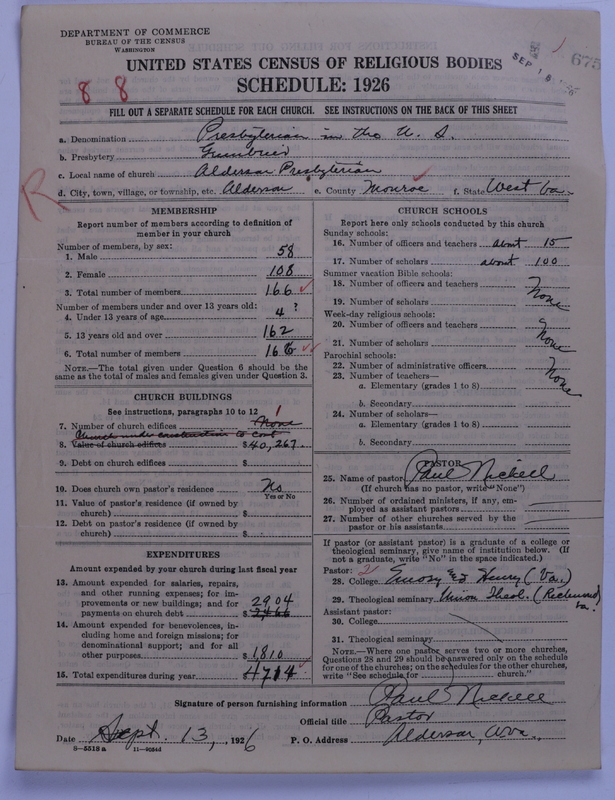 DEPARTMENT OF COMMERCE
BUREAU OF THE CENSUS
WASHINGTON
SEP 18 1926
675
UNITED STATES CENSUS OF RELIGIOUS BODIES
SCHEDULE: 1926
8 8
FILL OUT A SEPARATE SCHEDULE FOR EACH CHURCH. SEE INSTRUCTIONS ON THE BACK OF THIS SHEET
a. Denomination Presbyterian in the U. S.
b. Presbytery Greenbrier
c. Local name of church Alderson Presbyterian
R
d. City, town, village, or township, etc. Alderson e. County Monroe f. State West Va.
MEMBERSHIP
Report number of members according to definition of
member in your church
Number of members, by sex:
1. Male 58
2. Female 108
3. Total number of members 166
Number of members under and over 13 years old:
4. Under 13 years of age 4 ?
5. 13 years old and over 162
6. Total number of members 166
NOTE.—The total given under Question 6 should be
same as the total of males and females given under Question 3.
CHURCH BUILDINGS
See instructions, paragraphs 10 to 12
7. Number of church edifices None 1
Church under construction to cost
8. Value of church edifices $40,267.
9. Debt on church edifices $
10. Does church own pastor's residence No
Yes or No
11. Value of pastor's residence (if owned by
church) $
12. Debt on pastor's residence (if owned by
church) $
EXPENDITURES
Amount expended by your church during last fiscal year
13. Amount expended for salaries, repairs,
and other running expenses; for im-
provements or new buildings; and for 2904
payments on church debt $
14. Amount expended for benevolences, in-
cluding home and foreign missions; for
denominational support; and for all
other purposes $1,810
15. Total expenditures during year $4714
CHURCH SCHOOLS
Report here only schools conducted by this church
Sunday schools:
16. Number of officers and teachers about 15
17. Number of scholars about 100
Summer vacation Bible schools:
18. Number of officers and teachers
19. Number of scholars None
Week-day religious schools:
20. Number of officers and teachers
21. Number of scholars None
Parochial schools:
22. Number of administrative officers None
23. Number of teachers—
a. Elementary (grades 1 to 8)
b. Secondary
24. Number of scholars—
a. Elementary (grades 1 to 8)
b. Secondary
PASTOR
25. Name of pastor Paul Nickell
(If church has no pastor, write "None")
26. Number of ordained ministers, if any, em-
ployed as assistant pastors
27. Number of other churches served by the
pastor or his assistants
If pastor (or assistant pastor) is a graduate of a college or
theological seminary, give name of institution below. (If
not a graduate, write "No" in the space indicated.)
Pastor: 2
28. College Emory & Henry (Va.)
29. Theological seminary Union Theol. (Richmond Va.
Assistant pastor:
30. College
31. Theological seminary
NOTE.—Where one pastor serves two or more churches,
Questions 28 and 29 should be answered only on the schedule
for one of the churches; on the schedules for the other churches,
write "See schedule for church."
Signature of person furnishing information Paul Nickell
Official title Pastor
Date Sept. 13, 1926 P. O. Address Alderson, W.Va.
8—5518 a 11—9034d